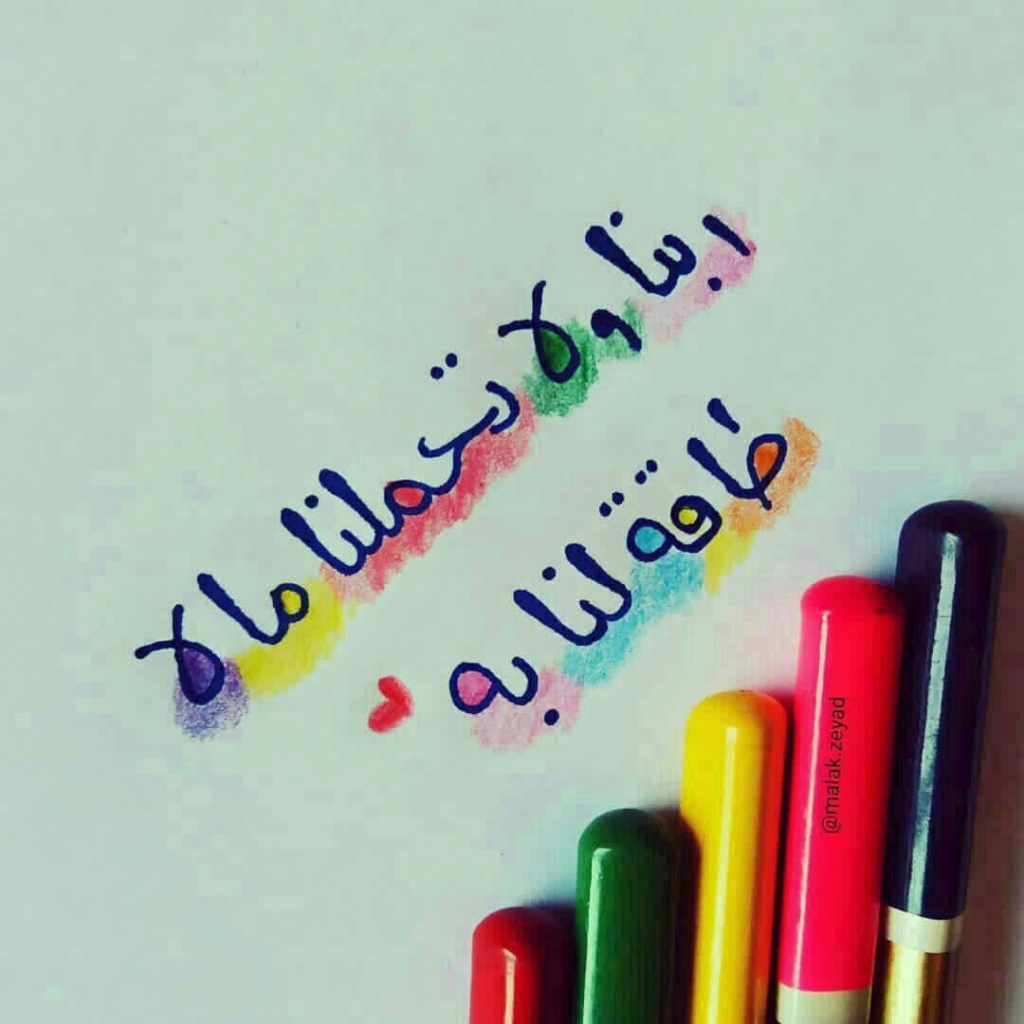 ربنا ولا تحملنا ما لا
طاقة لنا به
@malak.zeyad